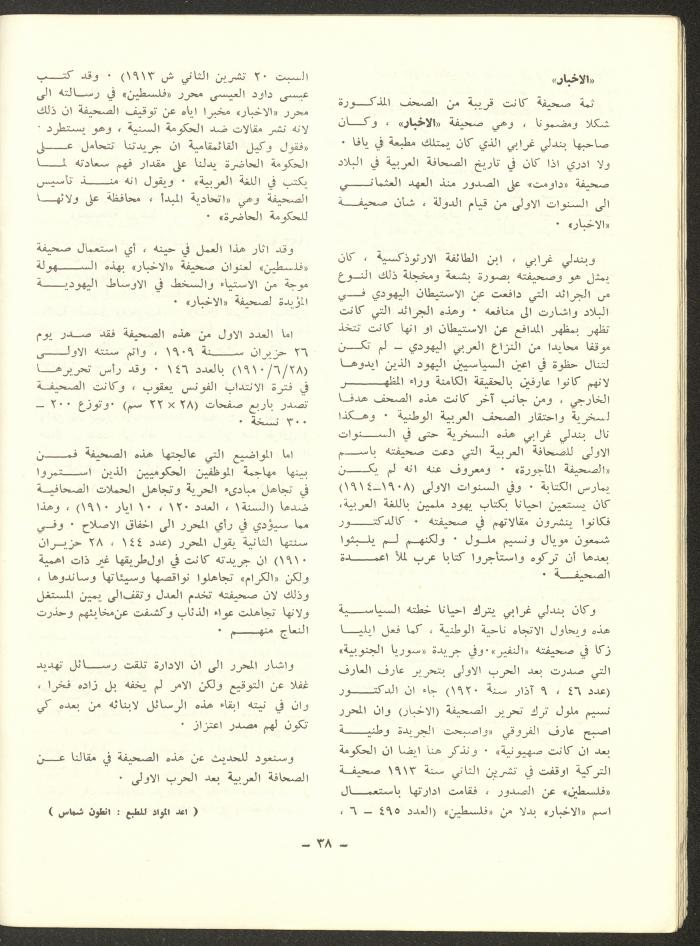 «الاخبار»
ثمة صحيفة كانت قريبة من الصحف المذكورة
شكلا ومضمونا ، وهي صحيفة «الاخبار» ، وكان
صاحبها بندلي غرابي الذي كان يمتلك مطبعة في يافا ٠
ولا ادري اذا كان في تاريخ الصحافة العربية في البلاد
صحيفة «داومت» على الصدور منذ العهد العثماني
الى السنوات الاولى من قيام الدولة ، شأن صحيفة
«الاخبار» ٠
وبندلي غرابي ، ابن الطائفة الارثوذكسية ، كان
يمثل هو وصحيفته بصورة بشعة ومخجلة ذلك النوع
من الجرائد التي دافعت عن الاستيطان اليهودي في
البلاد واشارت الى منافعه ٠ وهذه الجرائد التي كانت
تظهر بمظهر المدافع عن الاستيطان او انها كانت تتخذ
موقفا محايدا من النزاع العربي اليهودي ــ لم تكن
لتنال حظوة في اعين السياسيين اليهود الذين ايدوها
لانهم كانوا عارفين بالحقيقة الكامنة وراء المظهر
الخارجي ، ومن جانب آخر كانت هذه الصحف هدفا
لسخرية واحتقار الصحف العربية الوطنية ٠ وهكذا
نال بندلي غرابي هذه السخرية حتى في السنوات
الاولى للصحافة العربية التي دعت صحيفته باسم
«الصحيفة المأجورة» ٠ ومعروف عنه انه لم يكن
يمارس الكتابة ٠ وفي السنوات الاولى (١٩٠٨–١٩١٤)
كان يستعين احيانا بكتاب يهود ملمين باللغة العربية،
فكانوا ينشرون مقالاتهم في صحيفته ٠ كالدكتور
شمعون مويال ونسيم ملول ٠ ولكنهم لم يلبثوا
بعدها أن تركوه واستأجروا كتابا عرب لملأ اعمدة
الصحيفة ٠
وكان بندلي غرابي يترك احيانا خطته السياسية
هذه ويحاول الاتجاه ناحية الوطنية ، كما فعل ايليا
زكا في صحيفته «النفير»٠وفي جريدة «سوريا الجنوبية»
التي صدرت بعد الحرب الاولى بتحرير عارف العارف
(عدد ٤٦ ، ٩ آذار سنة ١٩٢٠) جاء ان الدكتور
نسيم ملول ترك تحرير الصحيفة (الاخبار) وان المحرر
اصبح عارف الفروقي «واصبحت الجريدة وطنية
بعد ان كانت صهيونية» ٠ ونذكر هنا ايضا ان الحكومة
التركية اوقفت في تشرين الثاني سنة ١٩١٣ صحيفة
«فلسطين» عن الصدور ، فقامت ادارتها باستعمال
اسم «الاخبار» بدلا من «فلسطين» (العدد ٤٩٥ ــ ٦ ،
السبت ٢٠ تشرين الثاني ش ١٩١٣) ٠ وقد كتب
عيسى داود العيسى محرر «فلسطين» في رسالته الى
محرر «الاخبار» مخبرا اياه عن توقيف الصحيفة ان ذلك
لانه نشر مقالات ضد الحكومة السنية ، وهو يستطرد ٠
«فقول وكيل القائمقامية ان جريدتنا تتحامل على
الحكومة الحاضرة يدلنا على مقدار فهم سعادته لما
يكتب في اللغة العربية» ٠ ويقول انه منذ تأسيس
الصحيفة وهي «اتحادية المبدأ ، محافظة على ولائها
للحكومة الحاضرة» ٠
وقد اثار هذا العمل في حينه ، أي استعمال صحيفة
«فلسطين» لعنوان صحيفة «الاخبار» بهذه السهولة
موجة من الاستياء والسخط في الاوساط اليهودية
المؤيدة لصحيفة «الاخبار» ٠
اما العدد الاول من هذه الصحيفة فقد صدر يوم
٢٦ حزيران سنة ١٩٠٩ ، واتم سنته الاولى
(١٩١٠/٦/٢٨) بالعدد ١٤٦ ٠ وقد رأس تحريرها
في فترة الانتداب الفونس يعقوب ، وكانت الصحيفة
تصدر باربع صفحات (٢٨ × ٢٢ سم) ٠وتوزع ٢٠٠ ــ
٣٠٠ نسخة ٠
اما المواضيع التي عالجتها هذه الصحيفة فمن
بينها مهاجمة الموظفين الحكوميين الذين استمروا
في تجاهل مبادىء الحرية وتجاهل الحملات الصحافية
ضدها (السنة١ ، العدد ١٢٠ ، ١٠ ايار ١٩١٠) ، وهذا
مما سيؤدي في رأي المحرر الى اخفاق الاصلاح ٠ وفي
سنتها الثانية يقول المحرر (عدد ١٤٤ ، ٢٨ حزيران
١٩١٠) ان جريدته كانت في اول‌طريقها غير ذات اهمية
ولكن «الكرام» تجاهلوا نواقصها وسيئاتها وساندوها ،
وذلك لان صحيفته تخدم العدل وتقف‌الى يمين المستغل
ولانها تجاهلت عواء الذئاب وكشفت عن‌مخابئهم وحذرت
النعاج منهم ٠
واشار المحرر الى ان الادارة تلقت رسائل تهديد
غفلا عن التوقيع ولكن الامر لم يخفه بل زاده فخرا ،
وان في نيته ابقاء هذه الرسائل لابنائه من بعده كي
تكون لهم مصدر اعتزاز ٠
وسنعود للحديث عن هذه الصحيفة في مقالنا عن
الصحافة العربية بعد الحرب الاولى ٠
( اعد المواد للطبع : انطون شماس )
ــ ٣٨ ــ